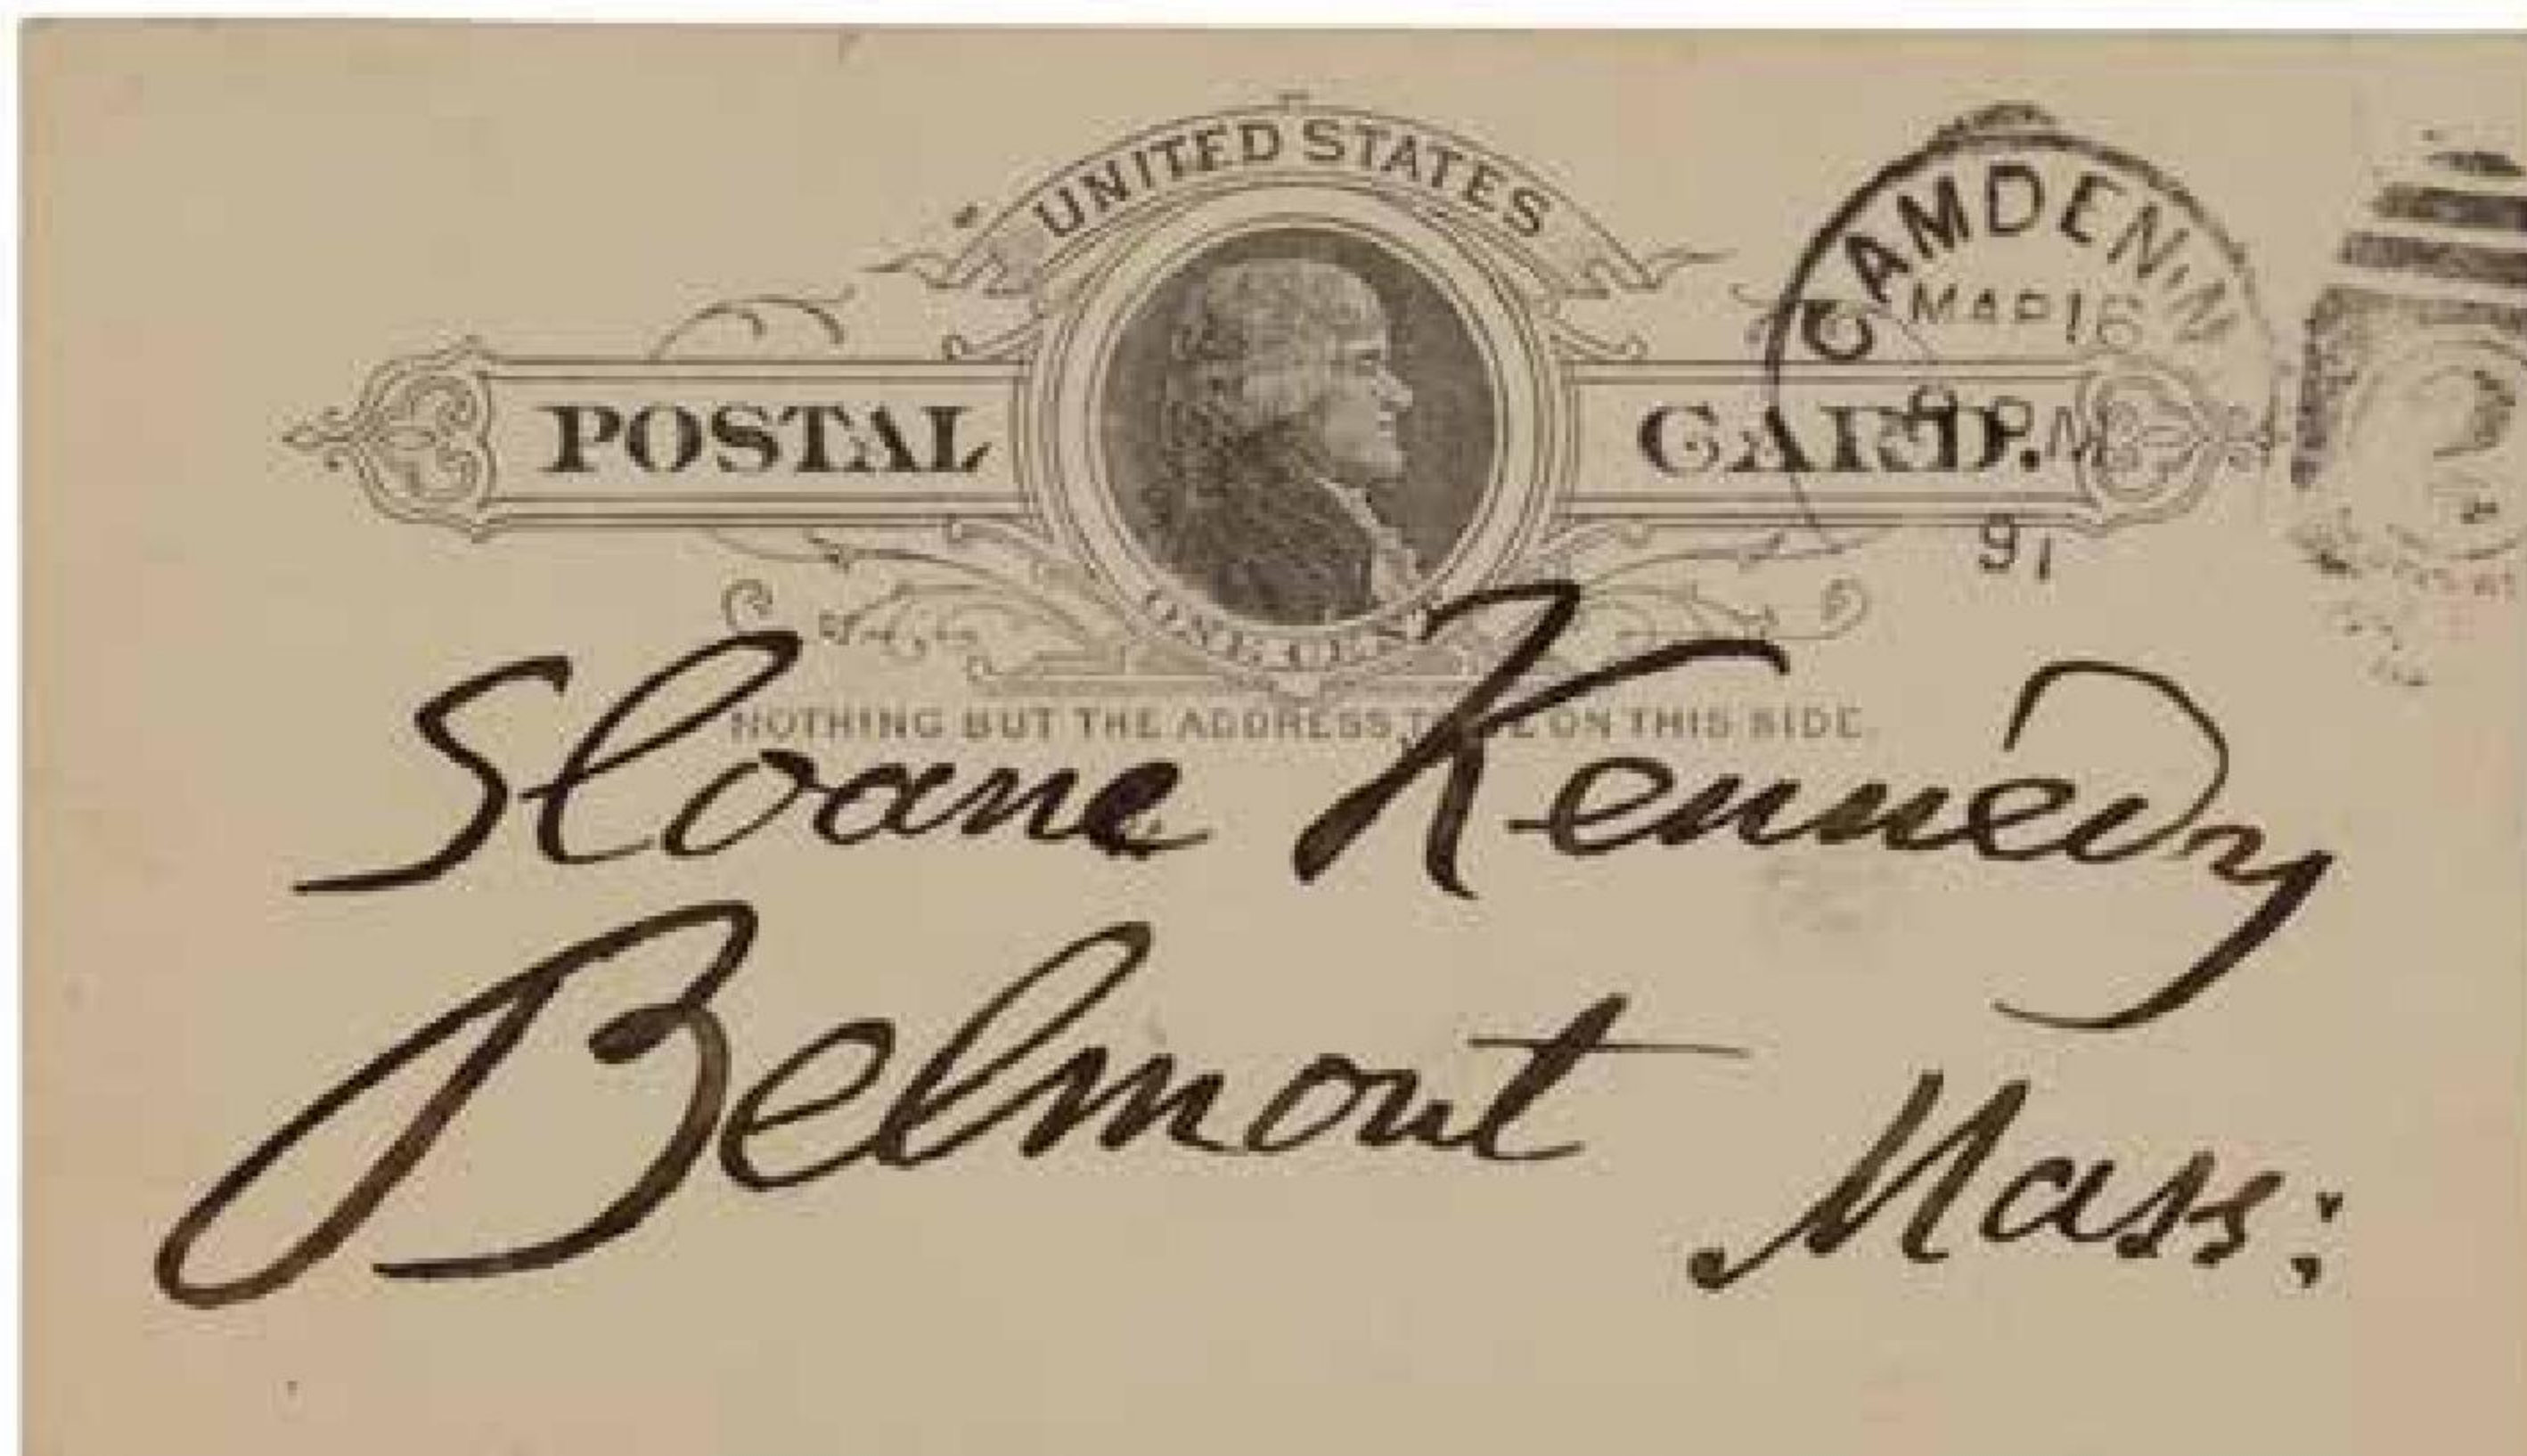 UNITED STATES
POSTAL CARD.
ONE CENT
NOTHING BUT THE ADDRESS ON THIS SIDE.
CAMDEN, N
MAR 16
PM
91
Sloane Kennedy
Belmont
Mass: